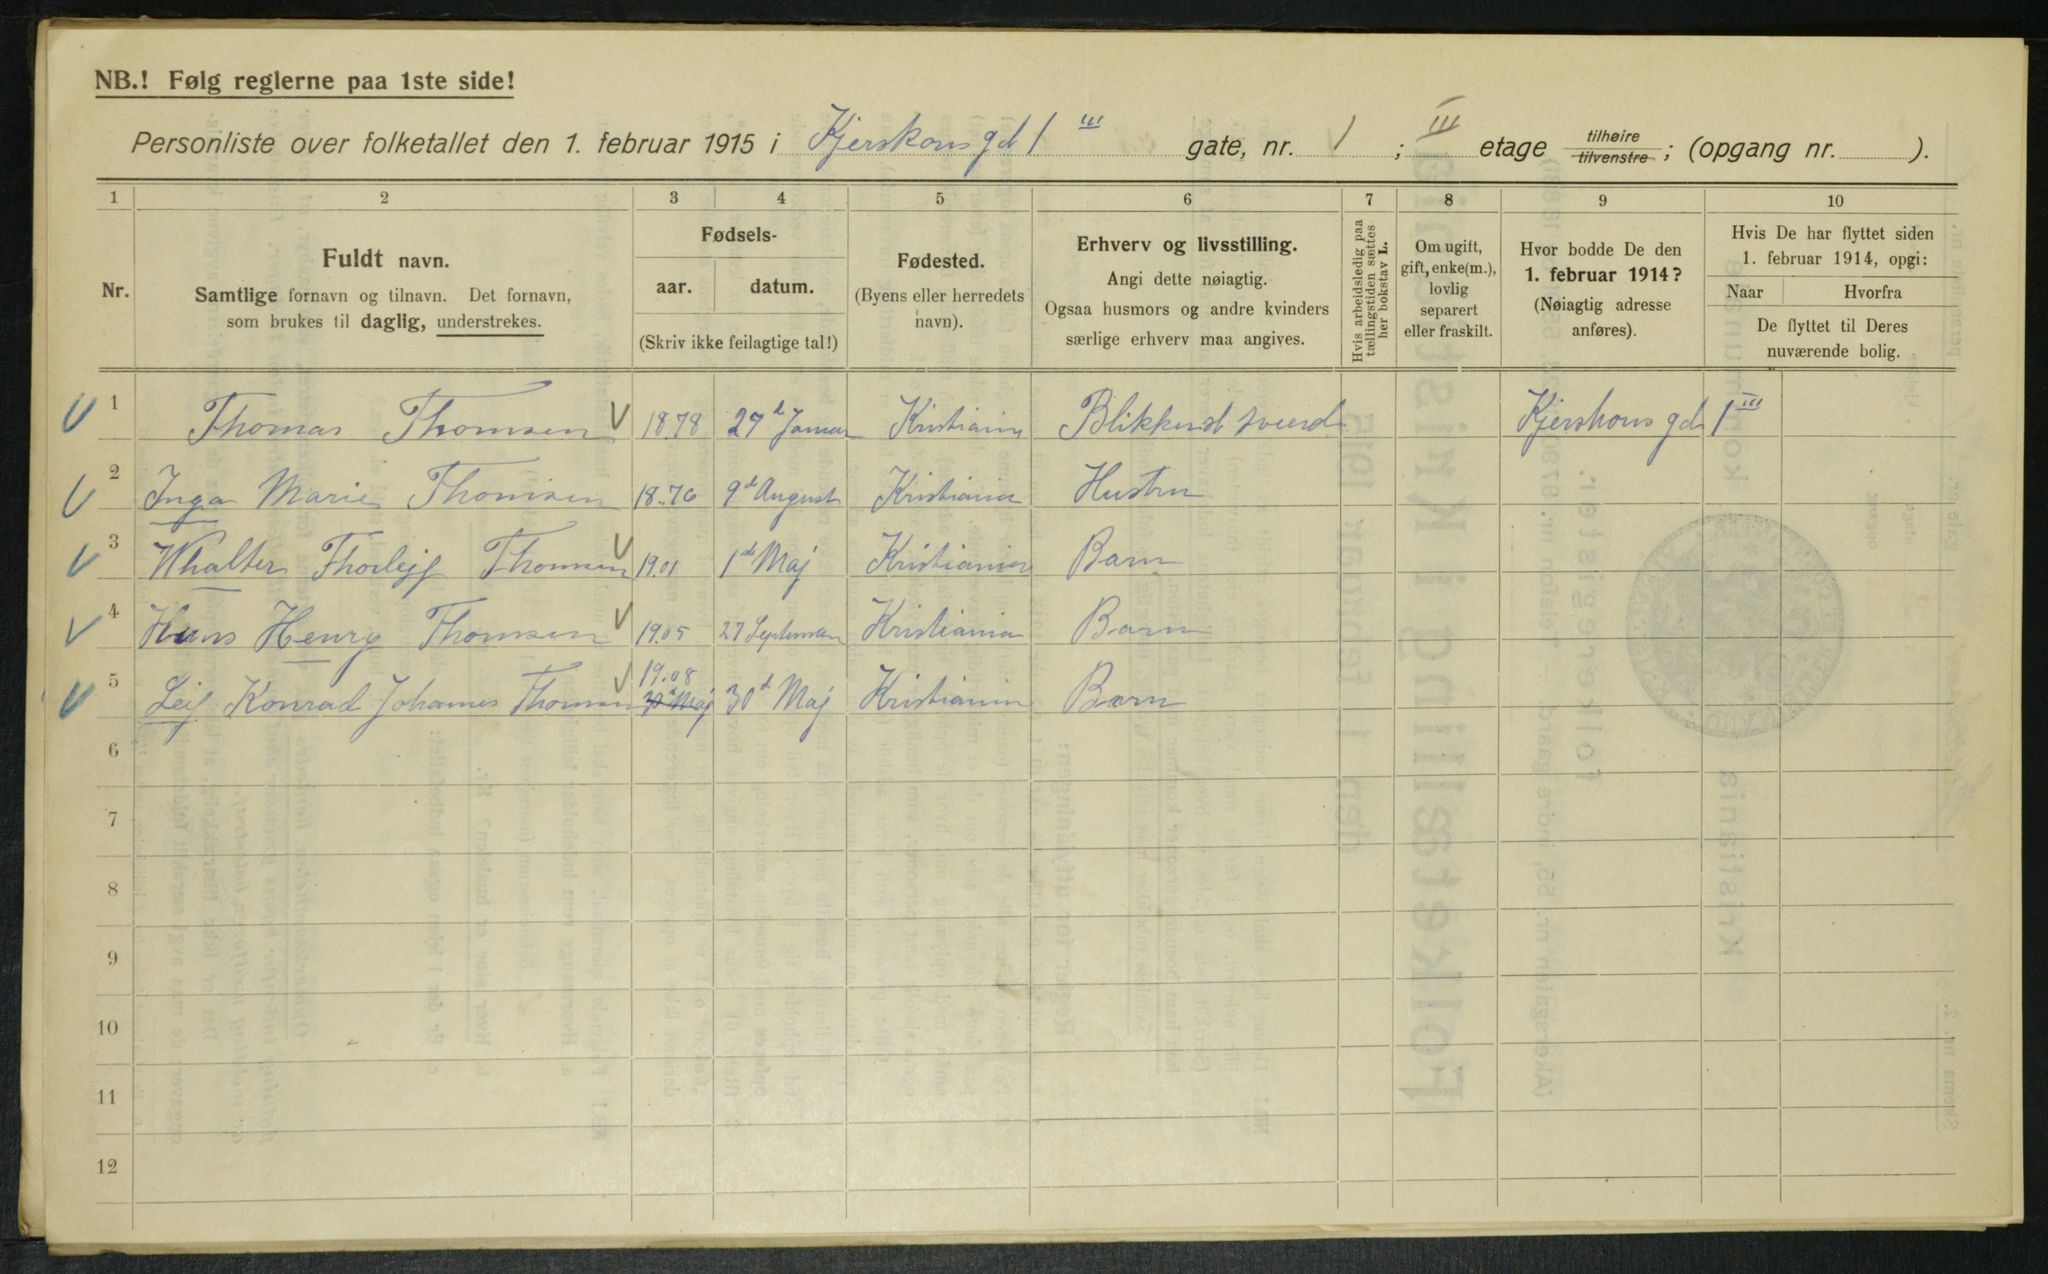 NB.! Følg reglerne paa 1ste side!
Personliste over folketallet den 1. februar 1915 i Kjerskows gd 1 III gate, nr. 1 ; III etage tilhøire tilvenstre ; (opgang nr. ).
1 2 3 4 5 6 7 8 9 10
Nr.
Fuldt navn.
Samtlige fornavn og tilnavn. Det fornavn,
som brukes til daglig, understrekes.
Fødsels-
aar. datum.
(Skriv ikke feilagtige tal!)
Fødested.
(Byens eller herredets
navn).
Erhverv og livsstilling.
Angi dette nøiagtig.
Ogsaa husmors og andre kvinders
særlige erhverv maa angives.
Hvis arbeidsledig paa
tællingstiden sættes
her bokstav L.
Om ugift,
gift, enke(m.),
lovlig
separert
eller fraskilt.
Hvor bodde De den
1. februar 1914?
(Nøiagtig adresse
anføres).
Hvis De har flyttet siden
1. februar 1914, opgi:
Naar Hvorfra
De flyttet til Deres
nuværende bolig.
1 Thomas Thomsen 1878 27d Januar Kristiania Blikkensl svend Kjerskows gd 1 III
2 Inga Marie Thomsen 1876 9d August Kristiania Hustru
3 Whalter Thorleif Thomsen 1901 1d Maj Kristiania Barn
4 Hans Henry Thomsen 1905 27 September Kristiania Barn
5 Leif Konrad Johannes Thomsen 1908 30d Maj 30d Maj Kristiania Barn
6
7
8
9
10
11
12